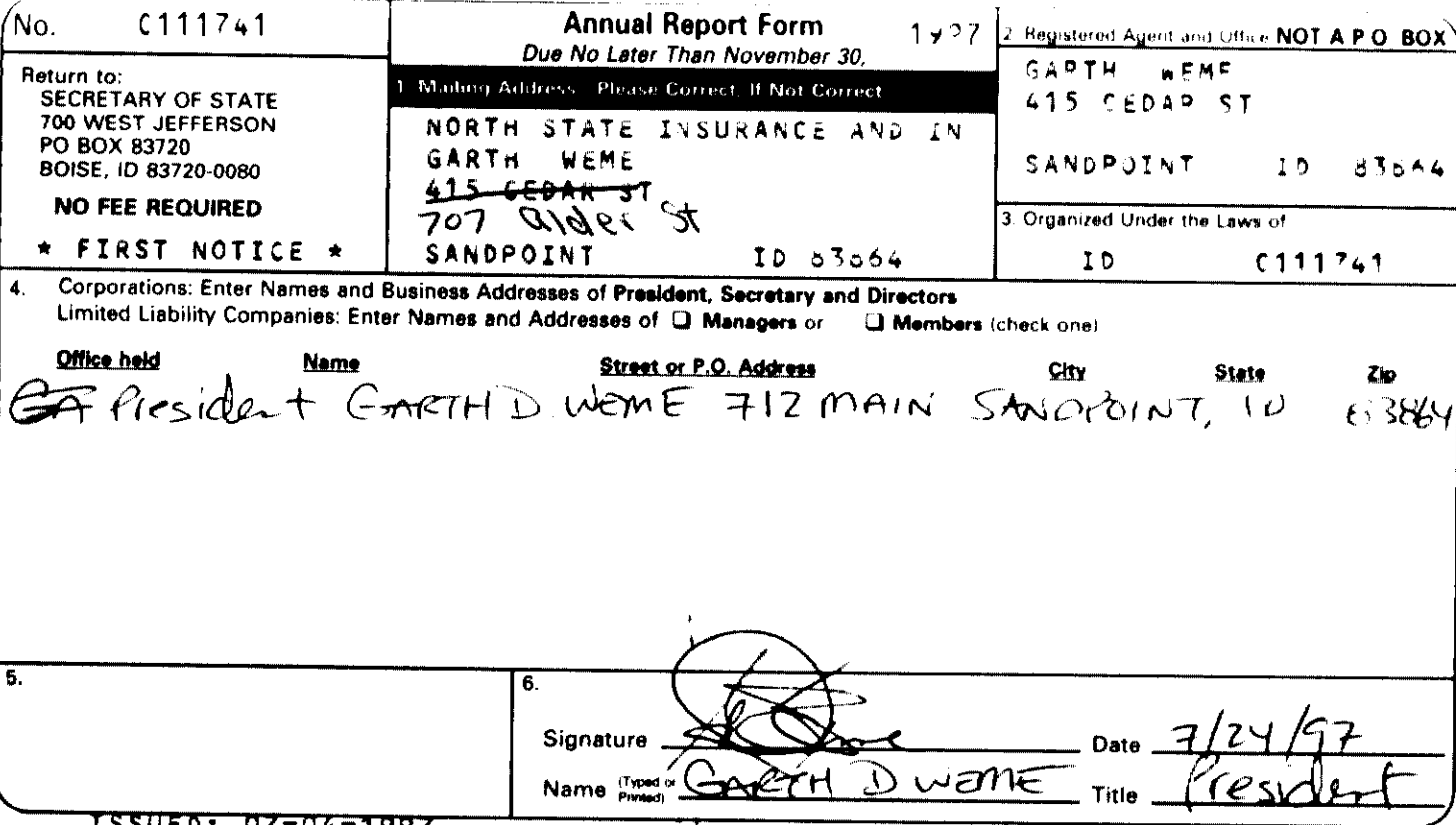 No. C111741
Annual Report Form 1997
Due No Later Than November 30,
Return to:
SECRETARY OF STATE
700 WEST JEFFERSON
PO BOX 83720
BOISE, ID 83720-0080
NO FEE REQUIRED
* FIRST NOTICE *
1. Mailing Address Please Correct, If Not Correct
NORTH STATE INSURANCE AND IN
GARTH WEME
415 CEDAR ST
707 Alder St
SANDPOINT ID 83864
2. Registered Agent and Office NOT A P O BOX
GARTH WEME
415 CEDAR ST
SANDPOINT ID 83864
3. Organized Under the Laws of
ID C111741
4. Corporations: Enter Names and Business Addresses of President, Secretary and Directors
Limited Liability Companies: Enter Names and Addresses of ❑ Managers or ❑ Members (check one)
Office held Name Street or P.O. Address City State Zip
President GARTH D WEME 712 MAIN SANDPOINT, ID 83864
5.
6.
Signature Date 7/24/97
Name (Typed or Printed) GARTH D WEME Title President
ISSUED: